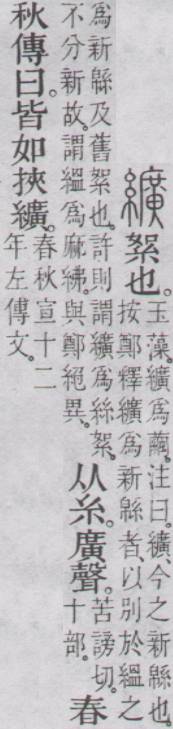 纊 絮也。玉藻。纊爲繭。注曰。纊、今之新緜也。
按鄭釋纊爲新緜者、以別於縕之
爲新緜及舊絮也。許則謂纊爲絲絮。
不分新故。謂縕爲麻紼。與鄭絕異。
从糸。廣聲。苦謗切。
十部。
春
秋傳曰。皆如挾纊。春秋宣十二
年左傳文。